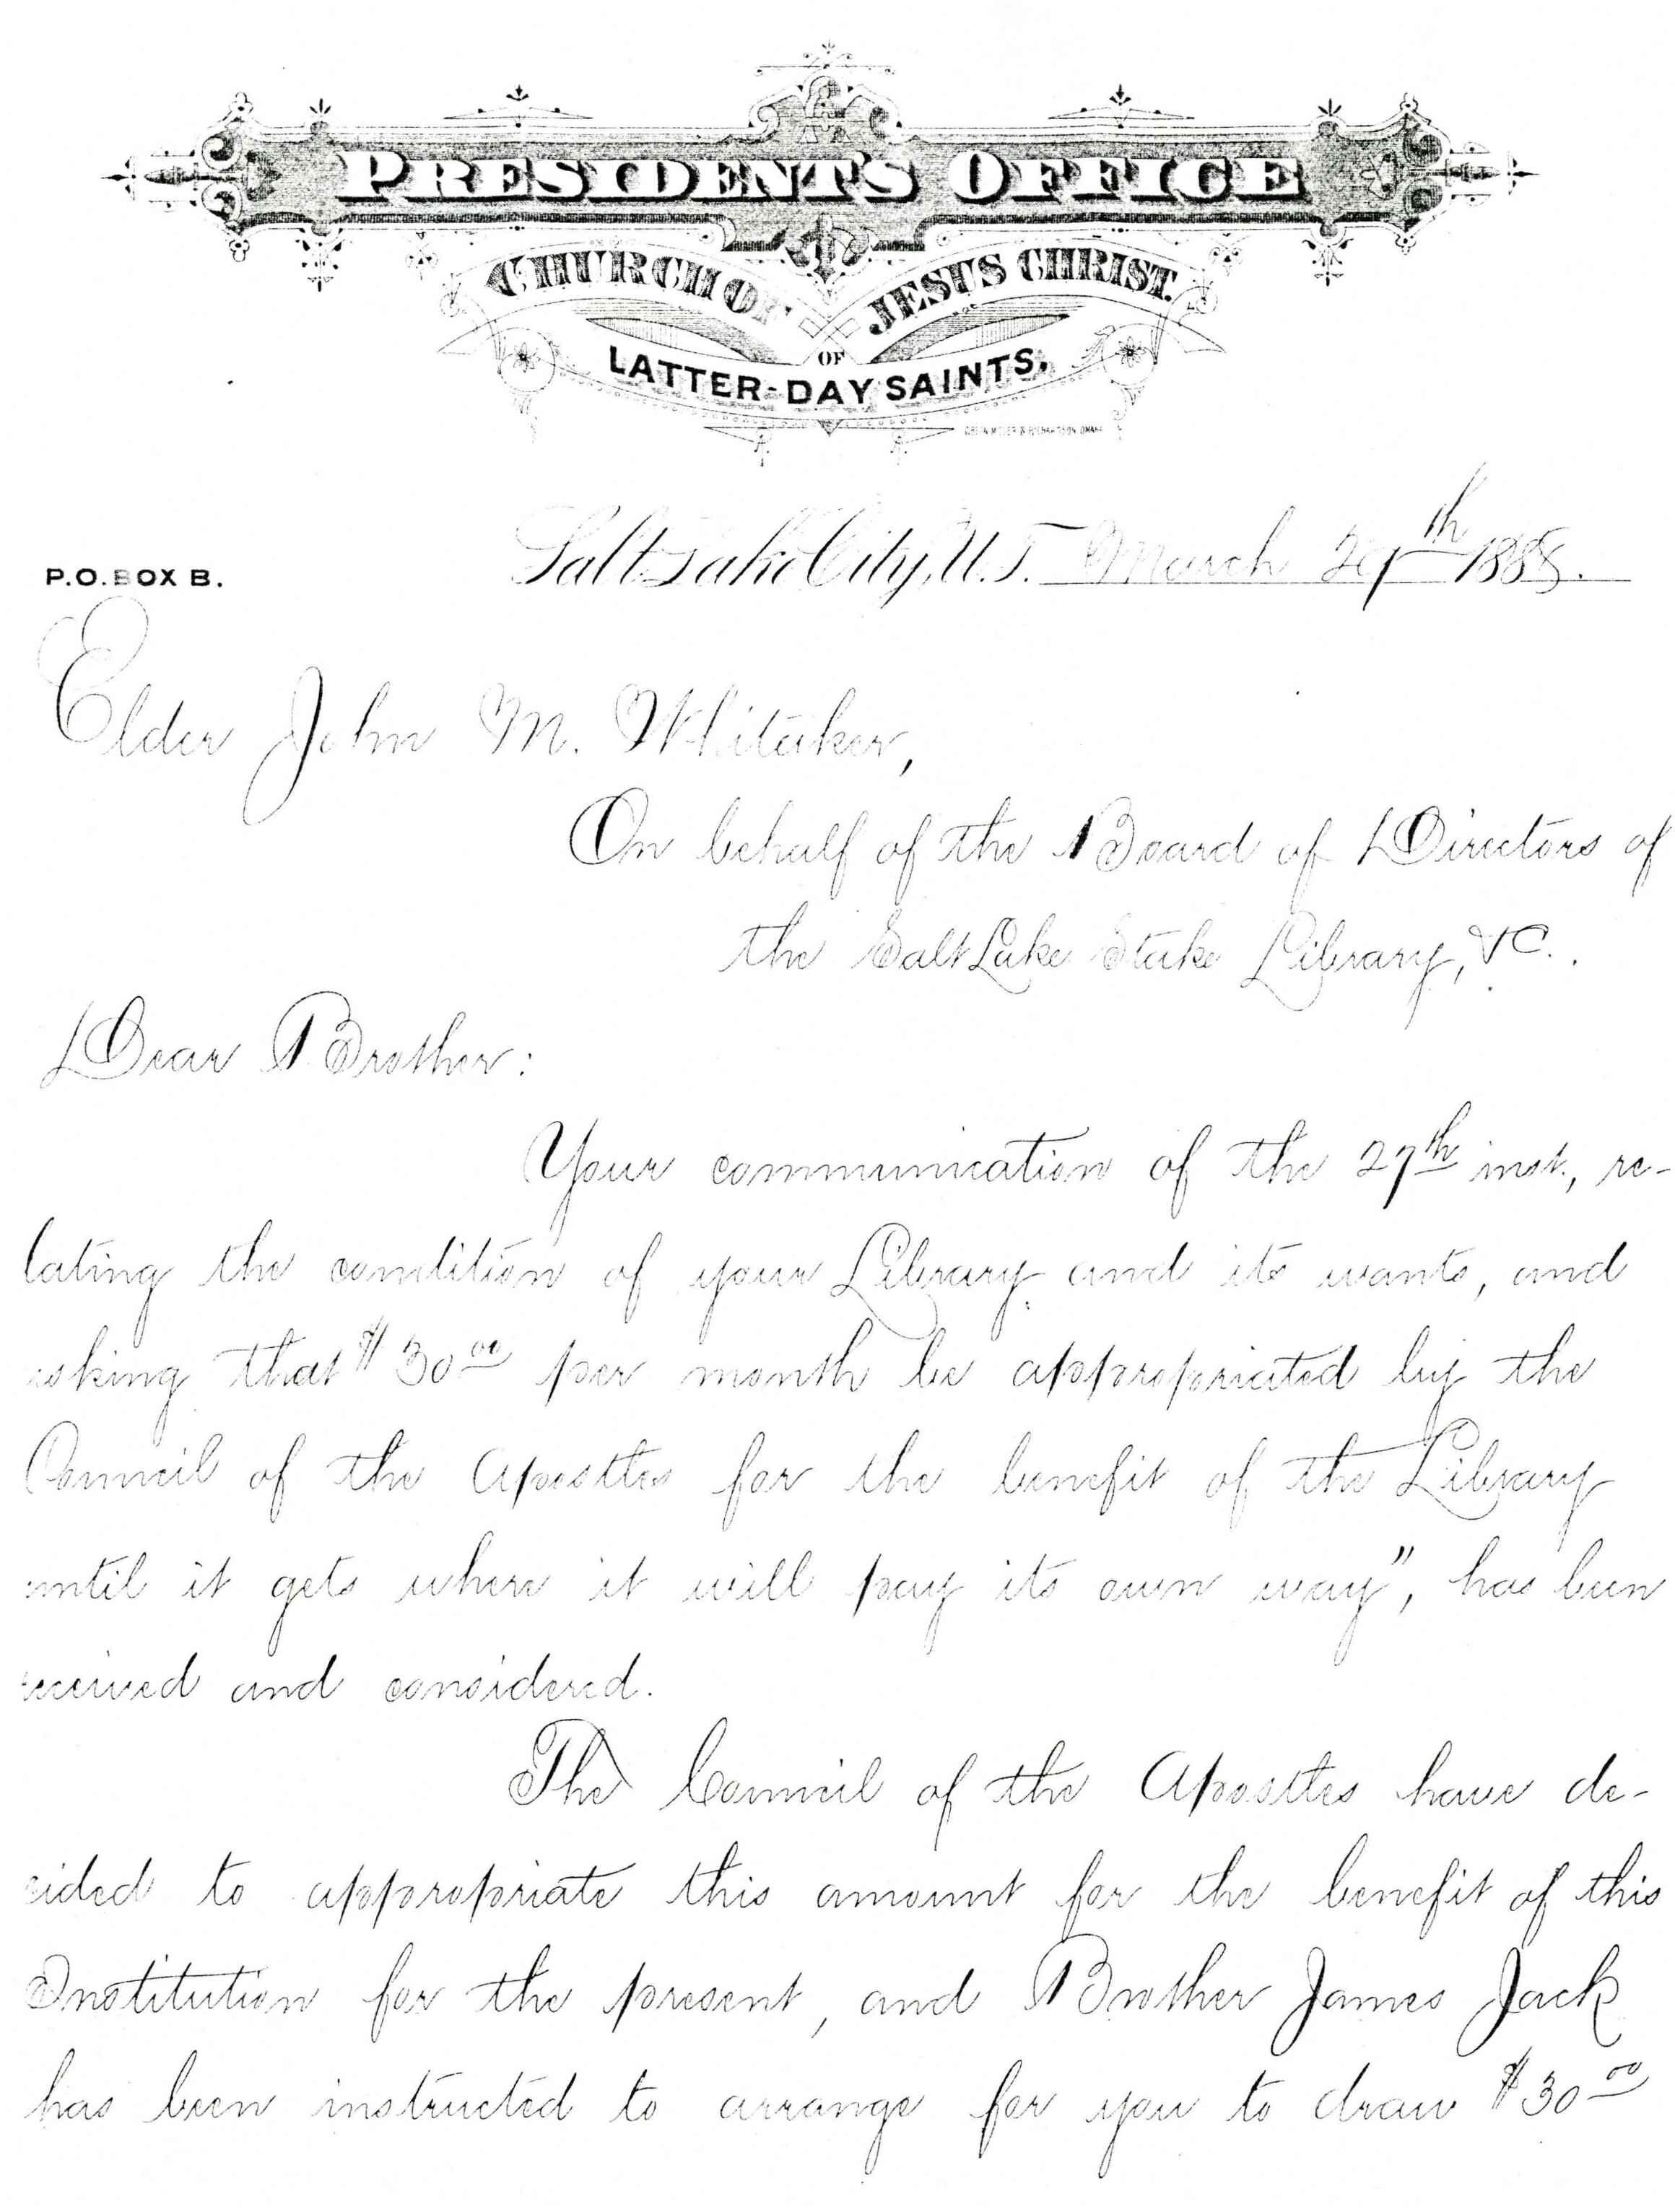 PRESIDENT'S OFFICE
CHURCH OF JESUS CHRIST
OF
LATTER-DAY SAINTS.
P.O. BOX B.
Salt Lake City, U.T. March 29th 1888.
Elder John M. Whitaker,
On behalf of the Board of Directors of
the Salt Lake Stake Library, &c..
Dear Brother:
Your communication of the 27th inst., re-
lating the condition of your Library and its wants, and
asking that $30.00 per month be appropriated by the
Council of the Apostles for the benefit of the Library
until it gets where it will pay its own way", has been
received and considered.
The Council of the Apostles have de-
cided to appropriate this amount for the benefit of this
Institution for the present, and Brother James Jack
has been instructed to arrange for you to draw $30.00